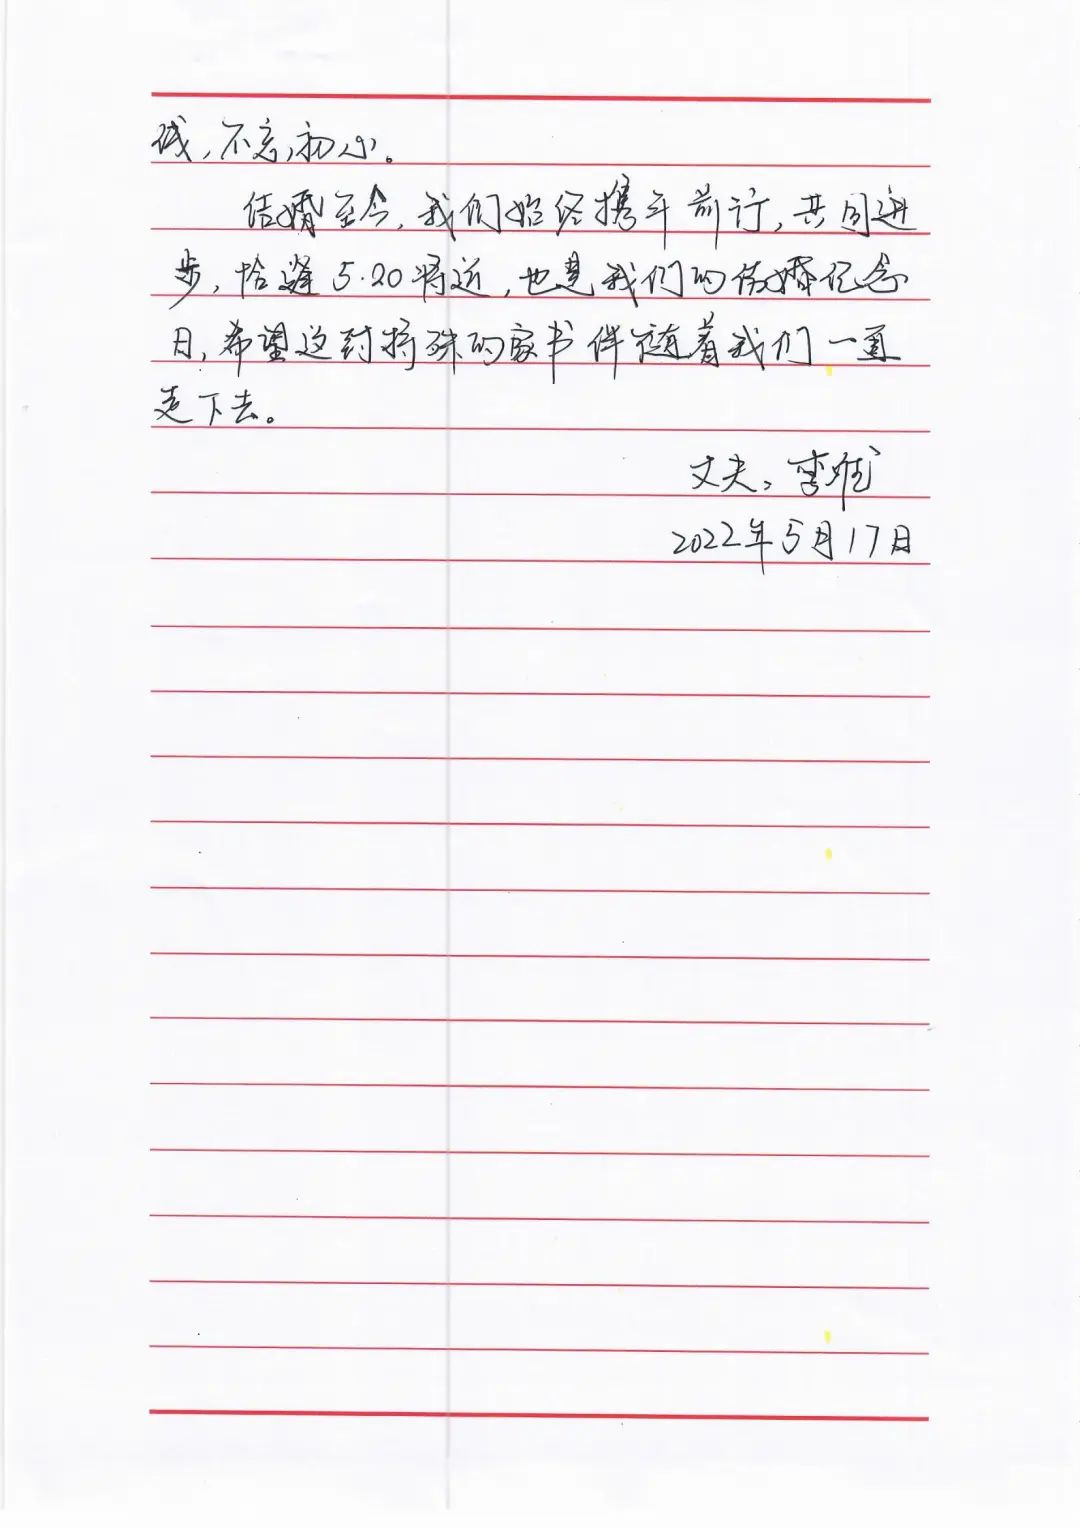 诚,不忘初心。
结婚至今,我们始终携手前行,共同进
步,恰逢5·20将近,也是我们的结婚纪念
日,希望这封特殊的家书伴随着我们一直
走下去。
丈夫:李
2022年5月17日